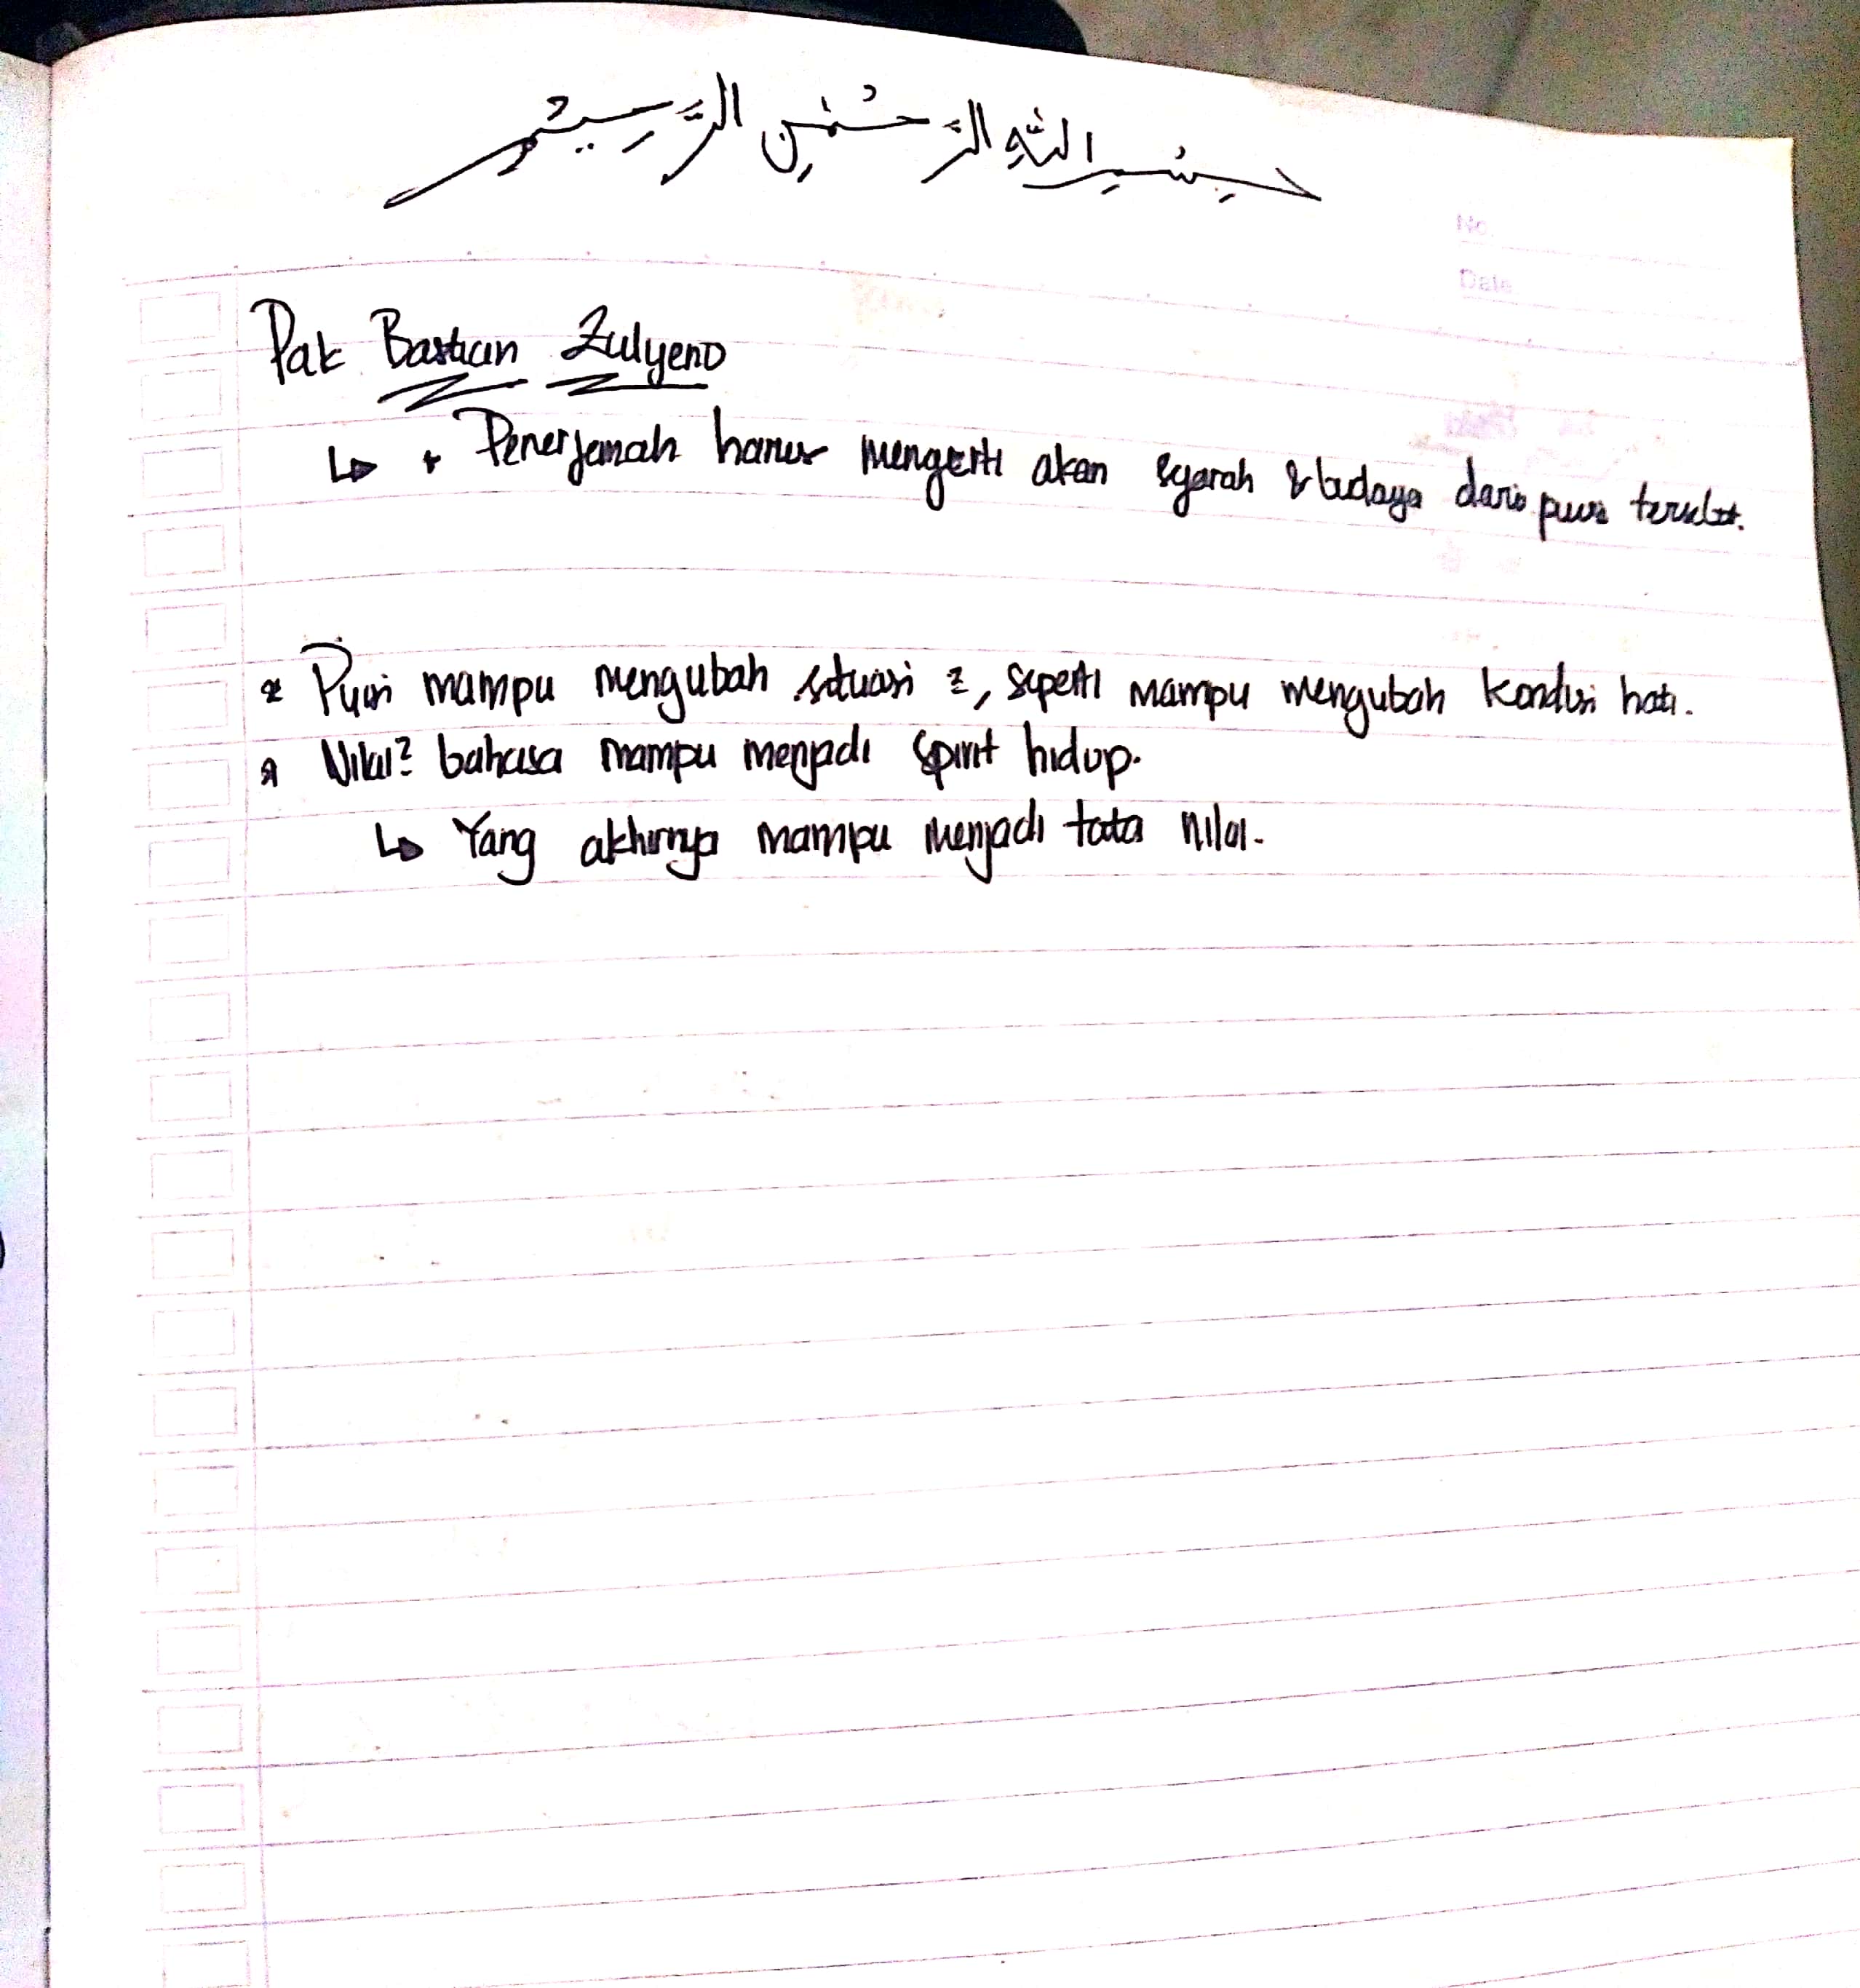 بِسْمِ اللّٰهِ الرَّحْمٰنِ الرَّحِيْمِ
No.
Date
Pak Bastian Zulyeno
↳ * Penerjemah harus mengerti akan syarah & budaya dari puisi tersebut.
* Puisi mampu mengubah situasi 2, seperti mampu mengubah kondisi hati.
* Nilai2 bahasa mampu menjadi spirit hidup.
↳ Yang akhirnya mampu menjadi tata nilai.